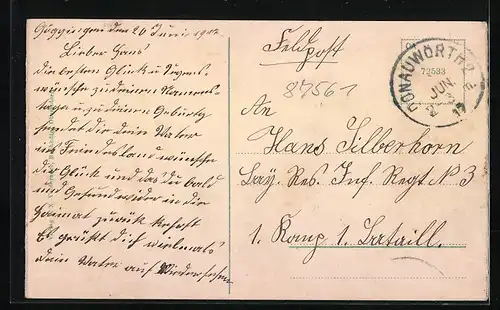 Göggingen den 20 Juni 1917
Lieber Hans
die besten Glück u. Segens-
wünsche zu deinem Namens-
tage u. zu deinem Geburts
sendet dir dein Vater
ins Feindesland wünsche
dir Glück und das du bald
und Gesund wieder in die
Haimat zurük kehrst
Es grüßt dich vielmals
dein Vater auf Wiedersehen
Feldpost
87561
72583
DONAUWÖRTH 2
JUN.
An
Hans Silberhorn
Bay. Res. Inf. Regt N 3
1. Komp 1. Bataill.